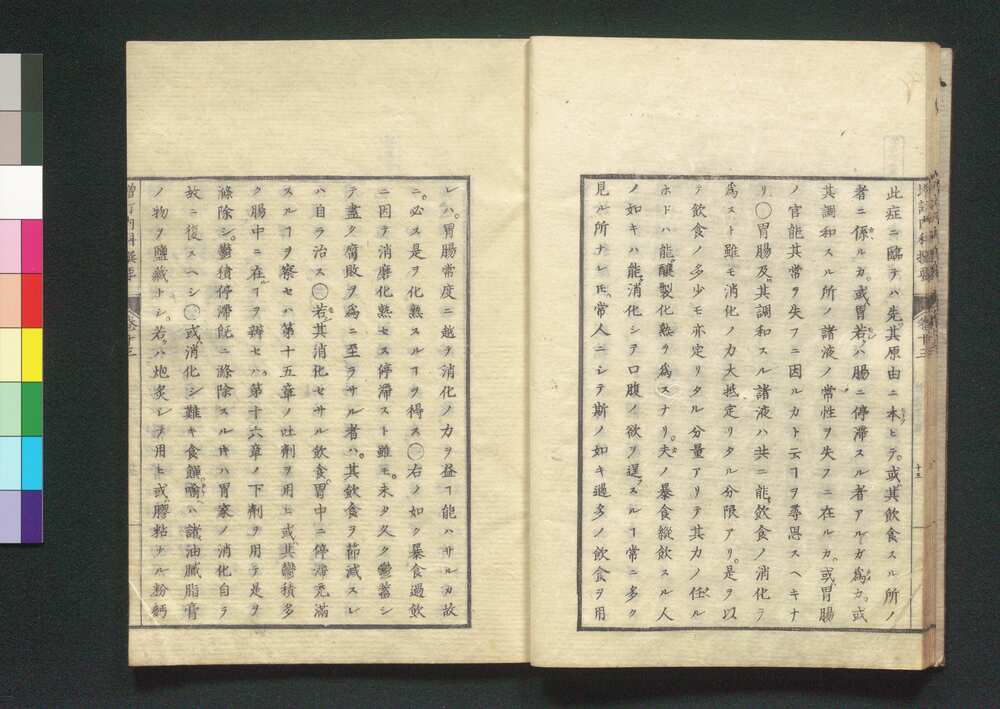 此症ニ臨テハ先其原由ニ本ヒテ。或其飲食スル所ノ
者ニ係ルカ。或胃若ハ腸ニ停滞スル者アルガ為カ。或
其調和スル所ノ諸液ノ常性ヲ失フニ在ルカ。或胃腸
ノ官能其常ヲ失フニ因ルカト云ヿヲ尋思スヘキナ
リ◯胃腸及其調和スル諸液ハ共ニ能飲食ノ消化ヲ
為スト雖モ消化ノ力大抵定リタル分限アリ。是ヲ以
テ飲食ノ多少モ亦定リタル分量アリテ其力ノ任ル
ホドハ能釀製化熟ヲ為スナリ。夫ノ暴食縦飲スル人
ノ如キハ能消化シテ口腹ノ欲ヲ逞スルヿ常ニ多ク
見ル所ナレ𪜈。常人ニシテ斯ノ如キ過多ノ飲食ヲ用
レハ。胃腸常度ニ越ヲ消化ノ力ヲ益ヿ能ハサルカ故
ニ。必ス是ヲ化熟スルヿヲ得ス◯右ノ如ク暴食過飲
ニ因テ消磨化熟セス停滞スト雖モ。未タ久ク鬱蓄シ
テ盡ク腐敗ヲ為ニ至ラサル者ハ。其飲食ヲ節減スレ
ハ自ラ治ス◯若其消化セサル飲食胃中ニ停滞充満
スルヿヲ察セハ第十五章ノ吐剤ヲ用ヒ或其鬱積多
ク腸中ニ在ヿヲ辨セハ。第十六章ノ下剤ヲ用テ是ヲ
滌除シ。鬱積停滞既ニ滌除スル𪜈ハ胃家ノ消化自ラ
故ニ復スヘシ◯或消化シ難キ食饌喩ハ諸油膩脂膏
ノ物ヲ鹽藏トシ。若ハ炮炙シテ用ヒ或膠粘ナル粉麪
増訂内科撰要
巻十三
十三